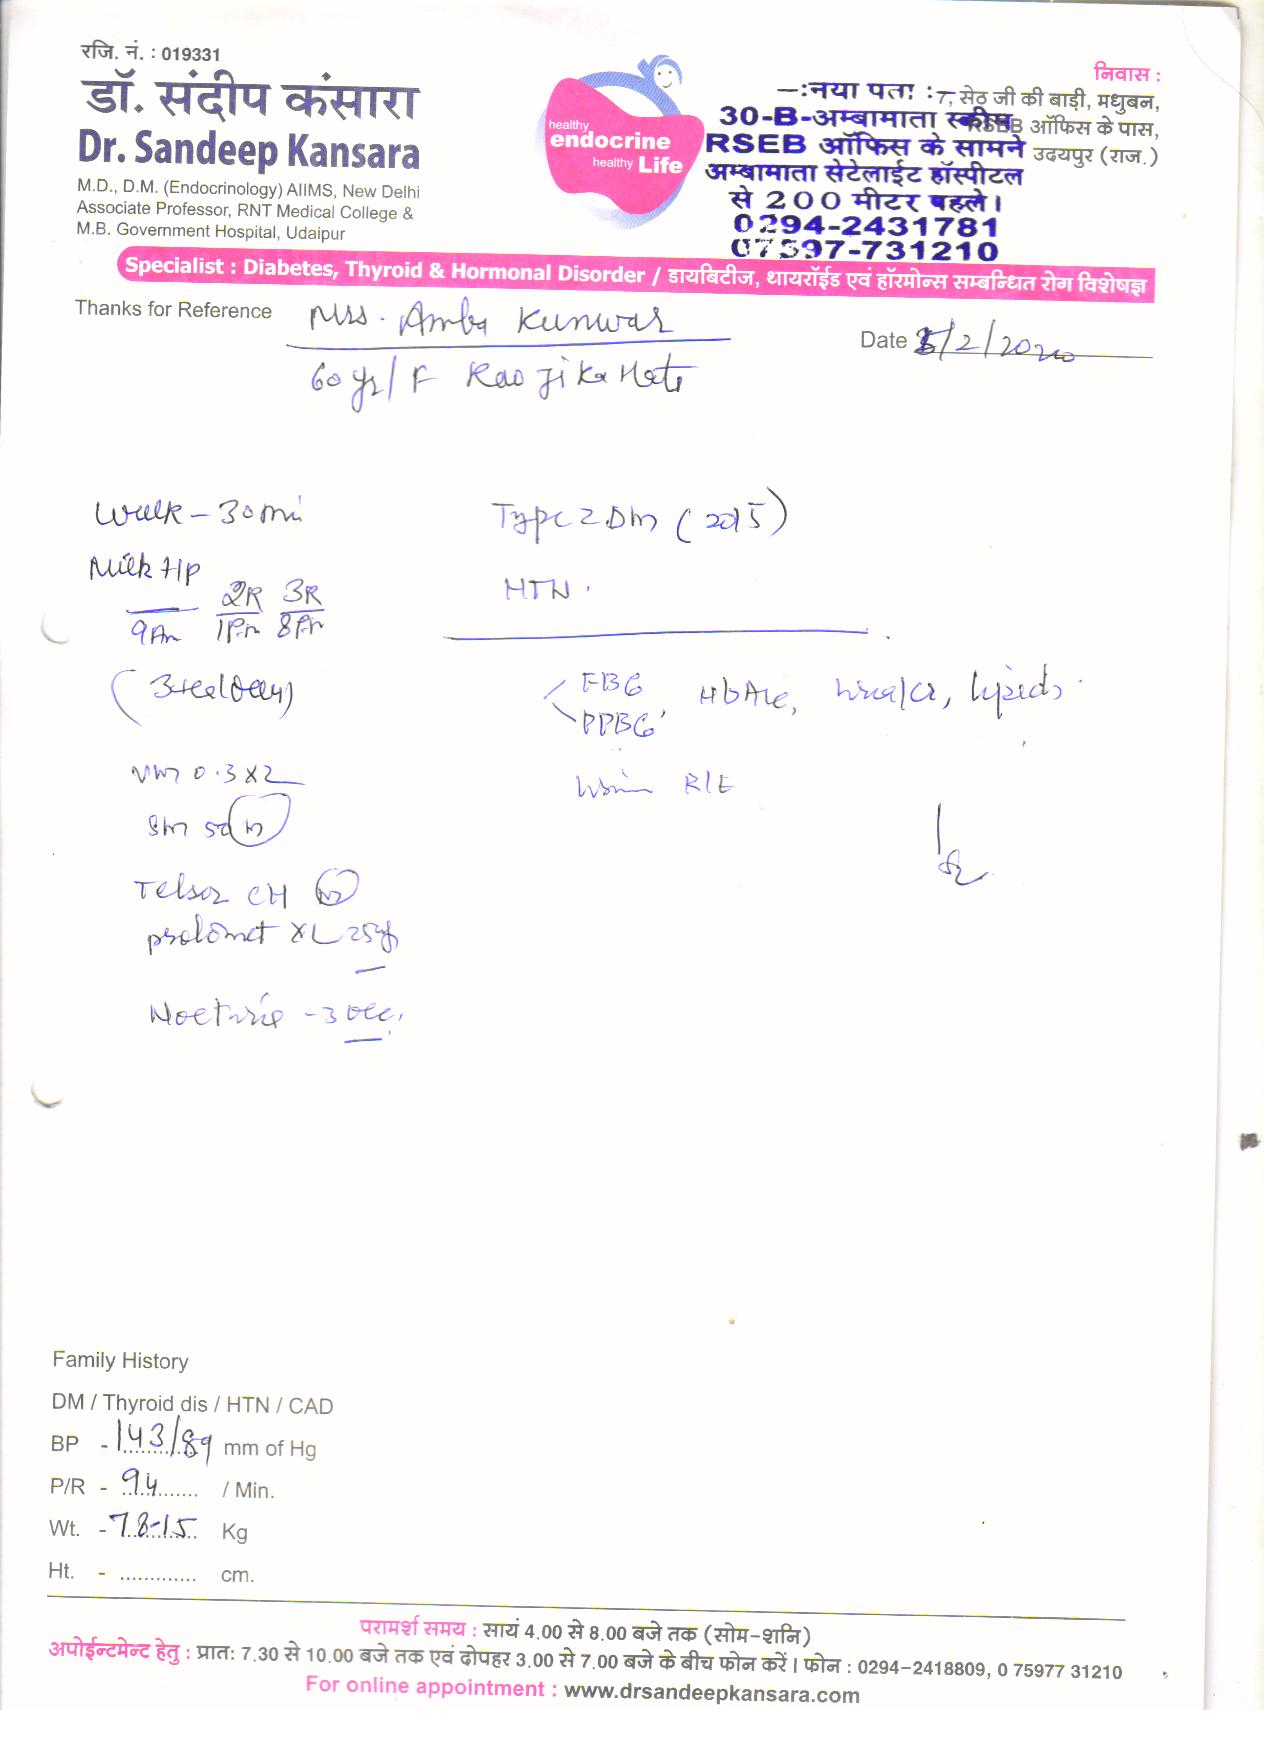 रजि. नं. : 019331
डॉ. संदीप कंसारा
Dr. Sandeep Kansara
M.D., D.M. (Endocrinology) AIIMS, New Delhi
Associate Professor, RNT Medical College &
M.B. Government Hospital, Udaipur
healthy
endocrine
healthy Life
निवास :
7, सेठ जी की बाड़ी, मधुबन,
RSEB ऑफिस के पास,
उदयपुर (राज.)
-:नया पता :-
30-B-अम्बामाता स्कीम
RSEB ऑफिस के सामने
अम्बामाता सेटेलाईट हॉस्पीटल
से 200 मीटर पहले।
0294-2431781
07597-731210
Specialist : Diabetes, Thyroid & Hormonal Disorder / डायबिटीज, थायरॉईड एवं हॉरमोन्स सम्बन्धित रोग विशेषज्ञ
Thanks for Reference Mrs. Amba Kunwar
Date /2/2020
60 yr/F Rao ji ka Hata
Walk - 30 mi
Type 2 Dm (2015)
Milk
2R 3R
HTN.
9Am 1Pm 8Pm
FBG
PPBG, HbA1c, Urea/Cr, Lipids
Vm 0.3 x 2
Urine R/E
Telsar CH
prolomet XL 25
Nocturia - 3 occ.
Family History
DM / Thyroid dis / HTN / CAD
BP - 143/89 mm of Hg
P/R - 94 / Min.
Wt. - 78-15 Kg
Ht. - ............. cm.
परामर्श समय : सायं 4.00 से 8.00 बजे तक (सोम-शनि)
अपोईन्टमेन्ट हेतु : प्रात: 7.30 से 10.00 बजे तक एवं दोपहर 3.00 से 7.00 बजे के बीच फोन करें। फोन : 0294-2418809, 0 75977 31210
For online appointment : www.drsandeepkansara.com